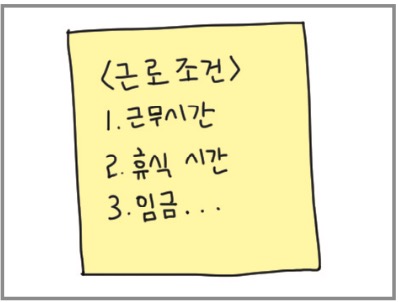 <근로조건>
1. 근무시간
2. 휴식 시간
3. 임금...